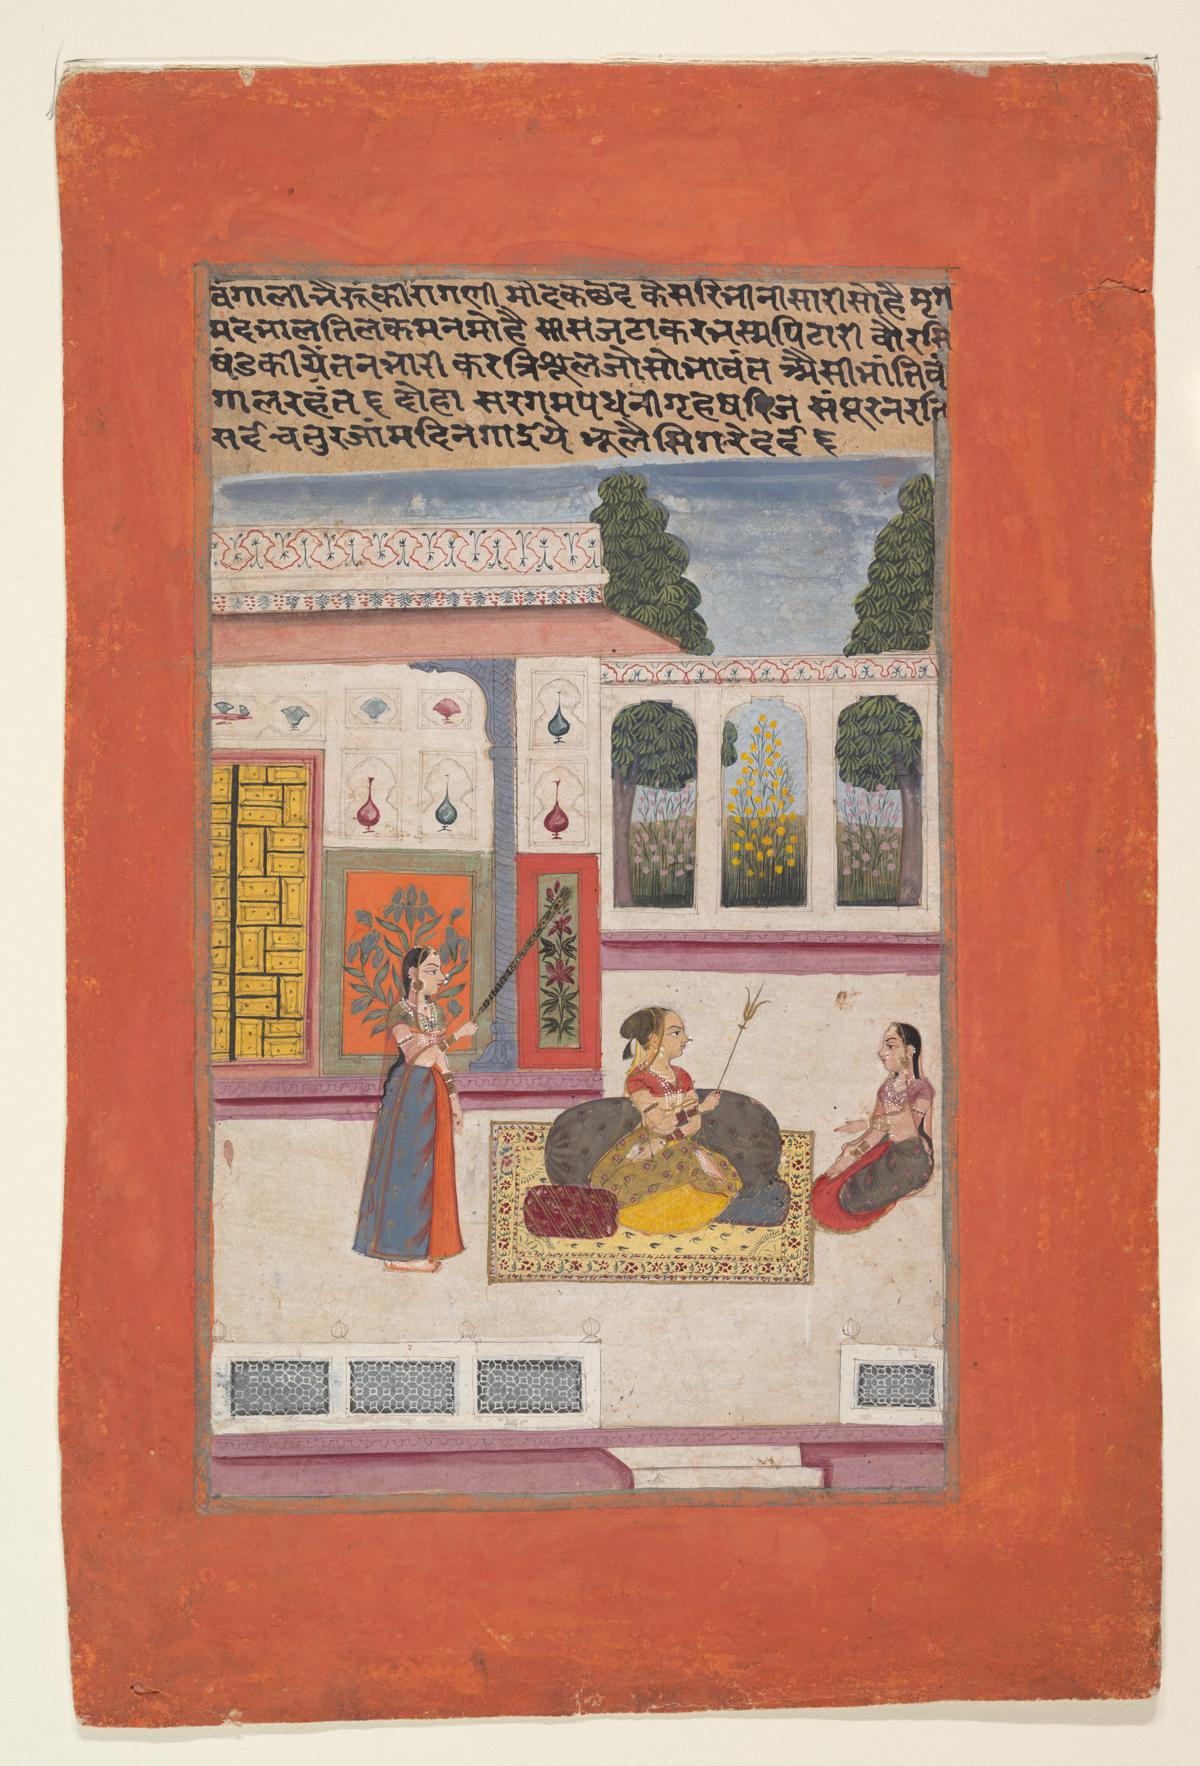 वंगाली भैरूं की रागणी मौदक छंद केसरि भीनी सारी सोहै मृग
मद भाल तिलक मन मोहै भास जटा कर भस्म पिटारी वौरसि
षंड की यें तन भारी कर त्रिशूल जो सो भावंत अैसी भांति वं
गाल रहंत ६ दोहा सरगमपधनी गृह षरिज संपूरन रति
सर्द चतुर जांम दिन गाईये भूलै सिगरे दर्द ६